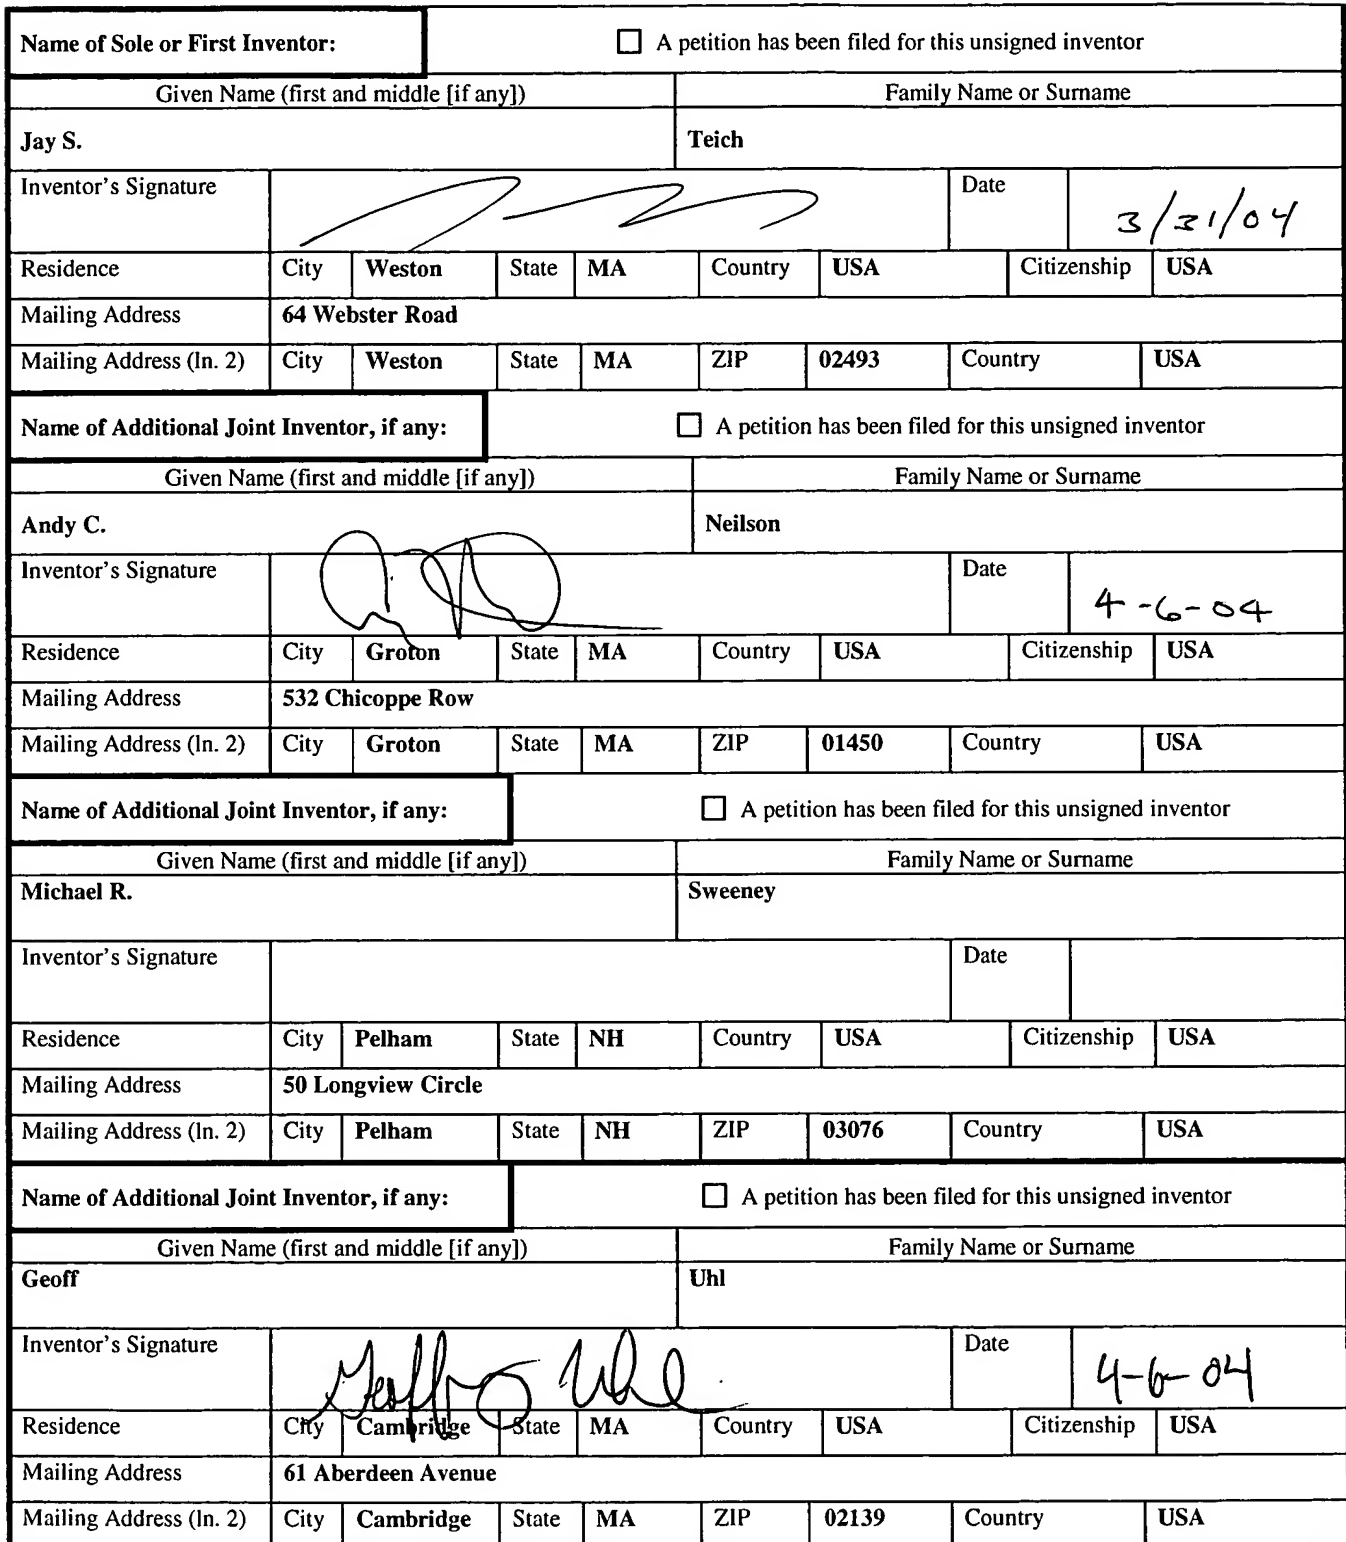 Name of Sole or First Inventor: ☐ A petition has been filed for this unsigned inventor
Given Name (first and middle [if any]) Family Name or Surname
Jay S. Teich
Inventor's Signature Date 3/31/04
Residence City Weston State MA Country USA Citizenship USA
Mailing Address 64 Webster Road
Mailing Address (ln. 2) City Weston State MA ZIP 02493 Country USA
Name of Additional Joint Inventor, if any: ☐ A petition has been filed for this unsigned inventor
Given Name (first and middle [if any]) Family Name or Surname
Andy C. Neilson
Inventor's Signature Date 4-6-04
Residence City Groton State MA Country USA Citizenship USA
Mailing Address 532 Chicoppe Row
Mailing Address (ln. 2) City Groton State MA ZIP 01450 Country USA
Name of Additional Joint Inventor, if any: ☐ A petition has been filed for this unsigned inventor
Given Name (first and middle [if any]) Family Name or Surname
Michael R. Sweeney
Inventor's Signature Date
Residence City Pelham State NH Country USA Citizenship USA
Mailing Address 50 Longview Circle
Mailing Address (ln. 2) City Pelham State NH ZIP 03076 Country USA
Name of Additional Joint Inventor, if any: ☐ A petition has been filed for this unsigned inventor
Given Name (first and middle [if any]) Family Name or Surname
Geoff Uhl
Inventor's Signature Geoffrey Uhl Date 4-6-04
Residence City Cambridge State MA Country USA Citizenship USA
Mailing Address 61 Aberdeen Avenue
Mailing Address (ln. 2) City Cambridge State MA ZIP 02139 Country USA